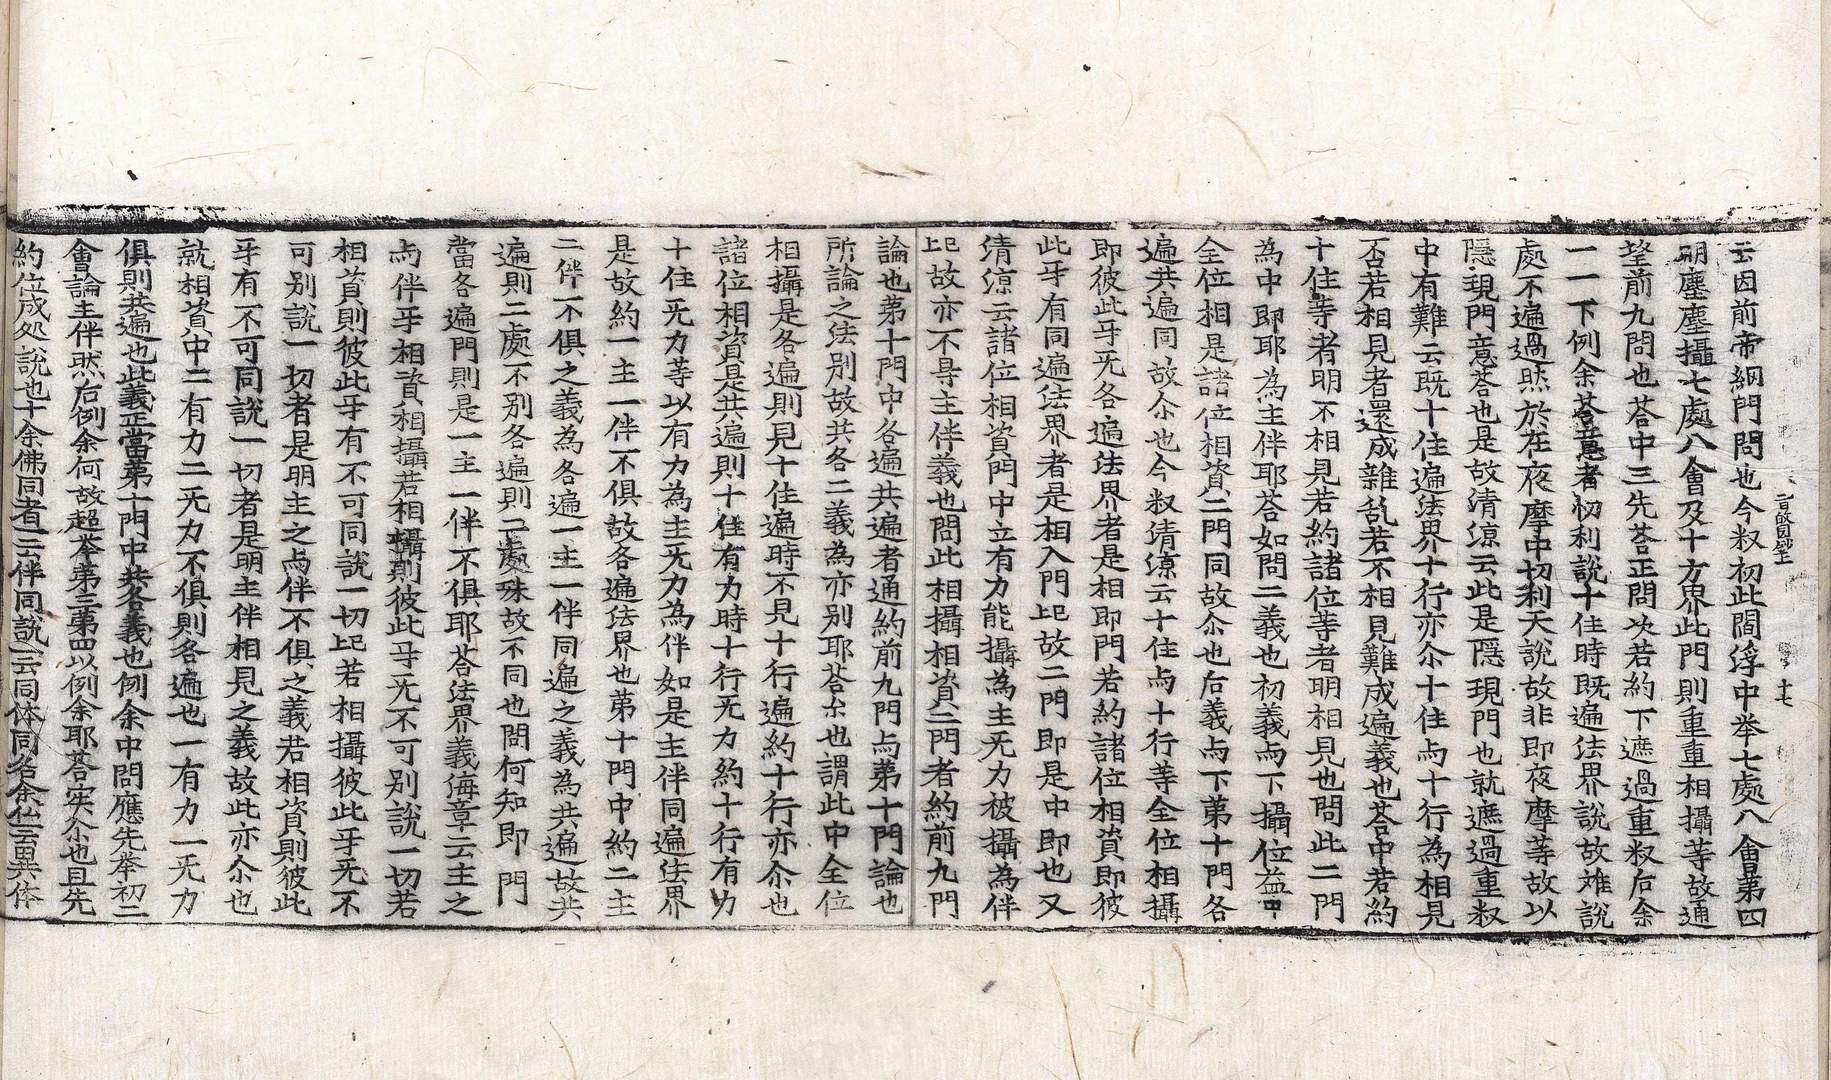 云因前帝網門問也今叙初此閻浮中举七處八會苐四
朙塵塵攝七處八會及十方界此門則重重相攝等故通
望前九問也荅中三先荅正問次若約下遮過重叙后余
一一下例余荅意者忉利說十住時既遍法界說故难說
處不遍過然於在夜摩中忉利天說故非即夜摩等故以
隱現門意荅也是故清凉云此是隱現門也就遮過重叙
中有難云既十住遍法界十行亦尒十住与十行為相見
否若相見者還成雜乱若不相見難成遍義也荅中若約
十住等者明不相見若約諸位等者明相見也問此二門
為中即耶為主伴耶荅如問二義也初義与下攝位
全位相是諸位相資二門同故尒也后義与下苐十門各
遍共遍同故尒也今叙清凉云十住与十行等全位相攝
即彼此𠂈无各遍法界者是相即門若約諸位相資即彼
此𠂈有同遍法界者是相入門㠯故二門即是中即也又
清凉云諸位相資門中立有力能攝為主无力被攝為伴
㠯故亦不㝵主伴義也問此相攝相資二門者約前九門
論也苐十門中各遍共遍者通約前九門与苐十門論也
所論之法別故共各二義為亦别耶荅尒也謂此中全位
相攝是各遍則見十住遍時不見十行遍約十行亦尒也
諸位相資是共遍則十住有力時十行无力約十行有力
十住无力等以有力為主无力為伴如是主伴同遍法界
是故約一主一伴不俱故各遍法界也苐十門中約二主
二伴不俱之義為各遍一主一伴同遍之義為共遍故共
遍則二處不别各遍則二處殊故不同也問何知即門
當各遍門則是一主一伴不俱耶荅法界義海章云主之
与伴𠂈相資相攝若相攝則彼此𠂈无不可别說一切若
相資則彼此𠂈有不可同說一切㠯若相攝彼此𠂈无不
可别說一切者是明主之与伴不俱之義若相資則彼此
𠂈有不可同說一切者是明主伴相見之義故此亦尒也
就相資中二有力二无力不俱則各遍也一有力一无力
俱則共遍也此義正當苐十門中共各義也例余中問應先举初二
會論主伴然后例余何故超举苐三苐四以例余耶荅实尒也且先
約位成処說也十余佛同者云伴同說云同体同名余仏云異体